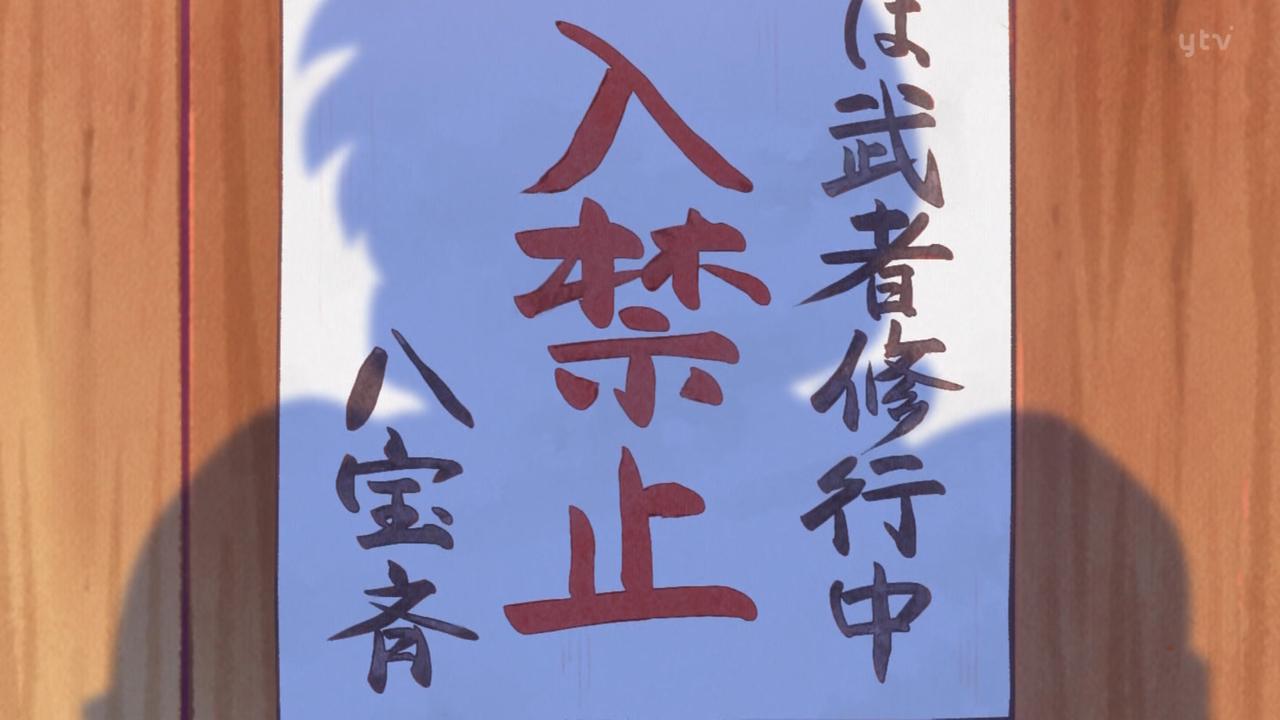 は武者修行中
入禁止
八宝斉
ytv